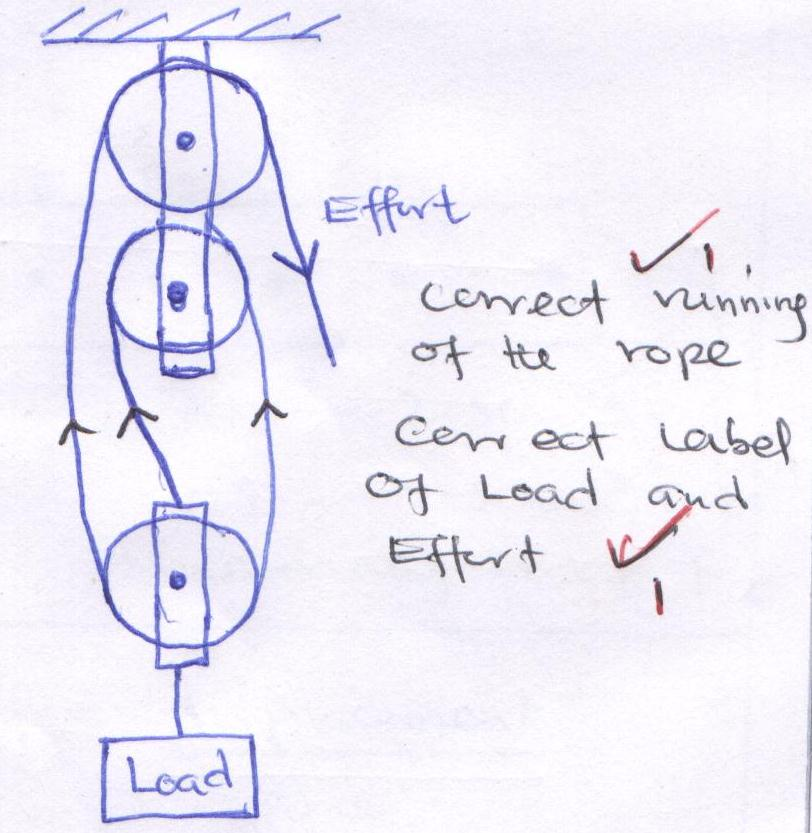 Effort
1
Correct running
of the rope
Correct Label
Of Load and
Effort
1
Load